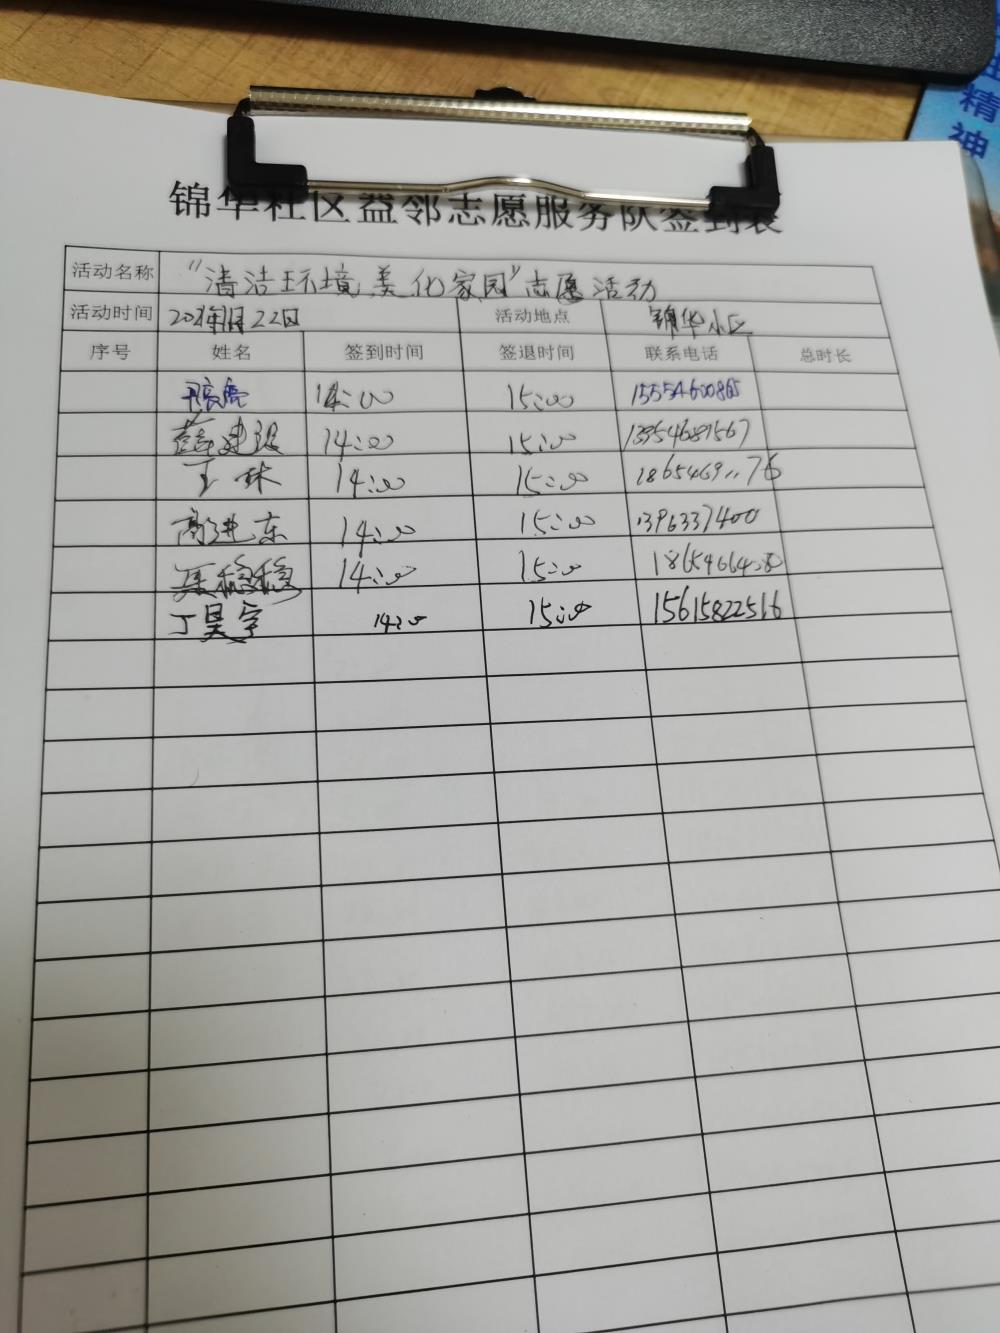 锦华社区益邻志愿服务队签到表
活动名称 “清洁环境 美化家园”志愿活动
活动时间 22日 活动地点 锦华小区
序号 姓名 签到时间 签退时间 联系电话 总时长
14:00 15:00 15554600865
薛建设 14:00 15:00 13954681567
王林 14:00 15:00 76
高进东 14:00 15:00
稳稳 14:00 15:00
丁昊宇 14:00 15:00 15615822516
精
神